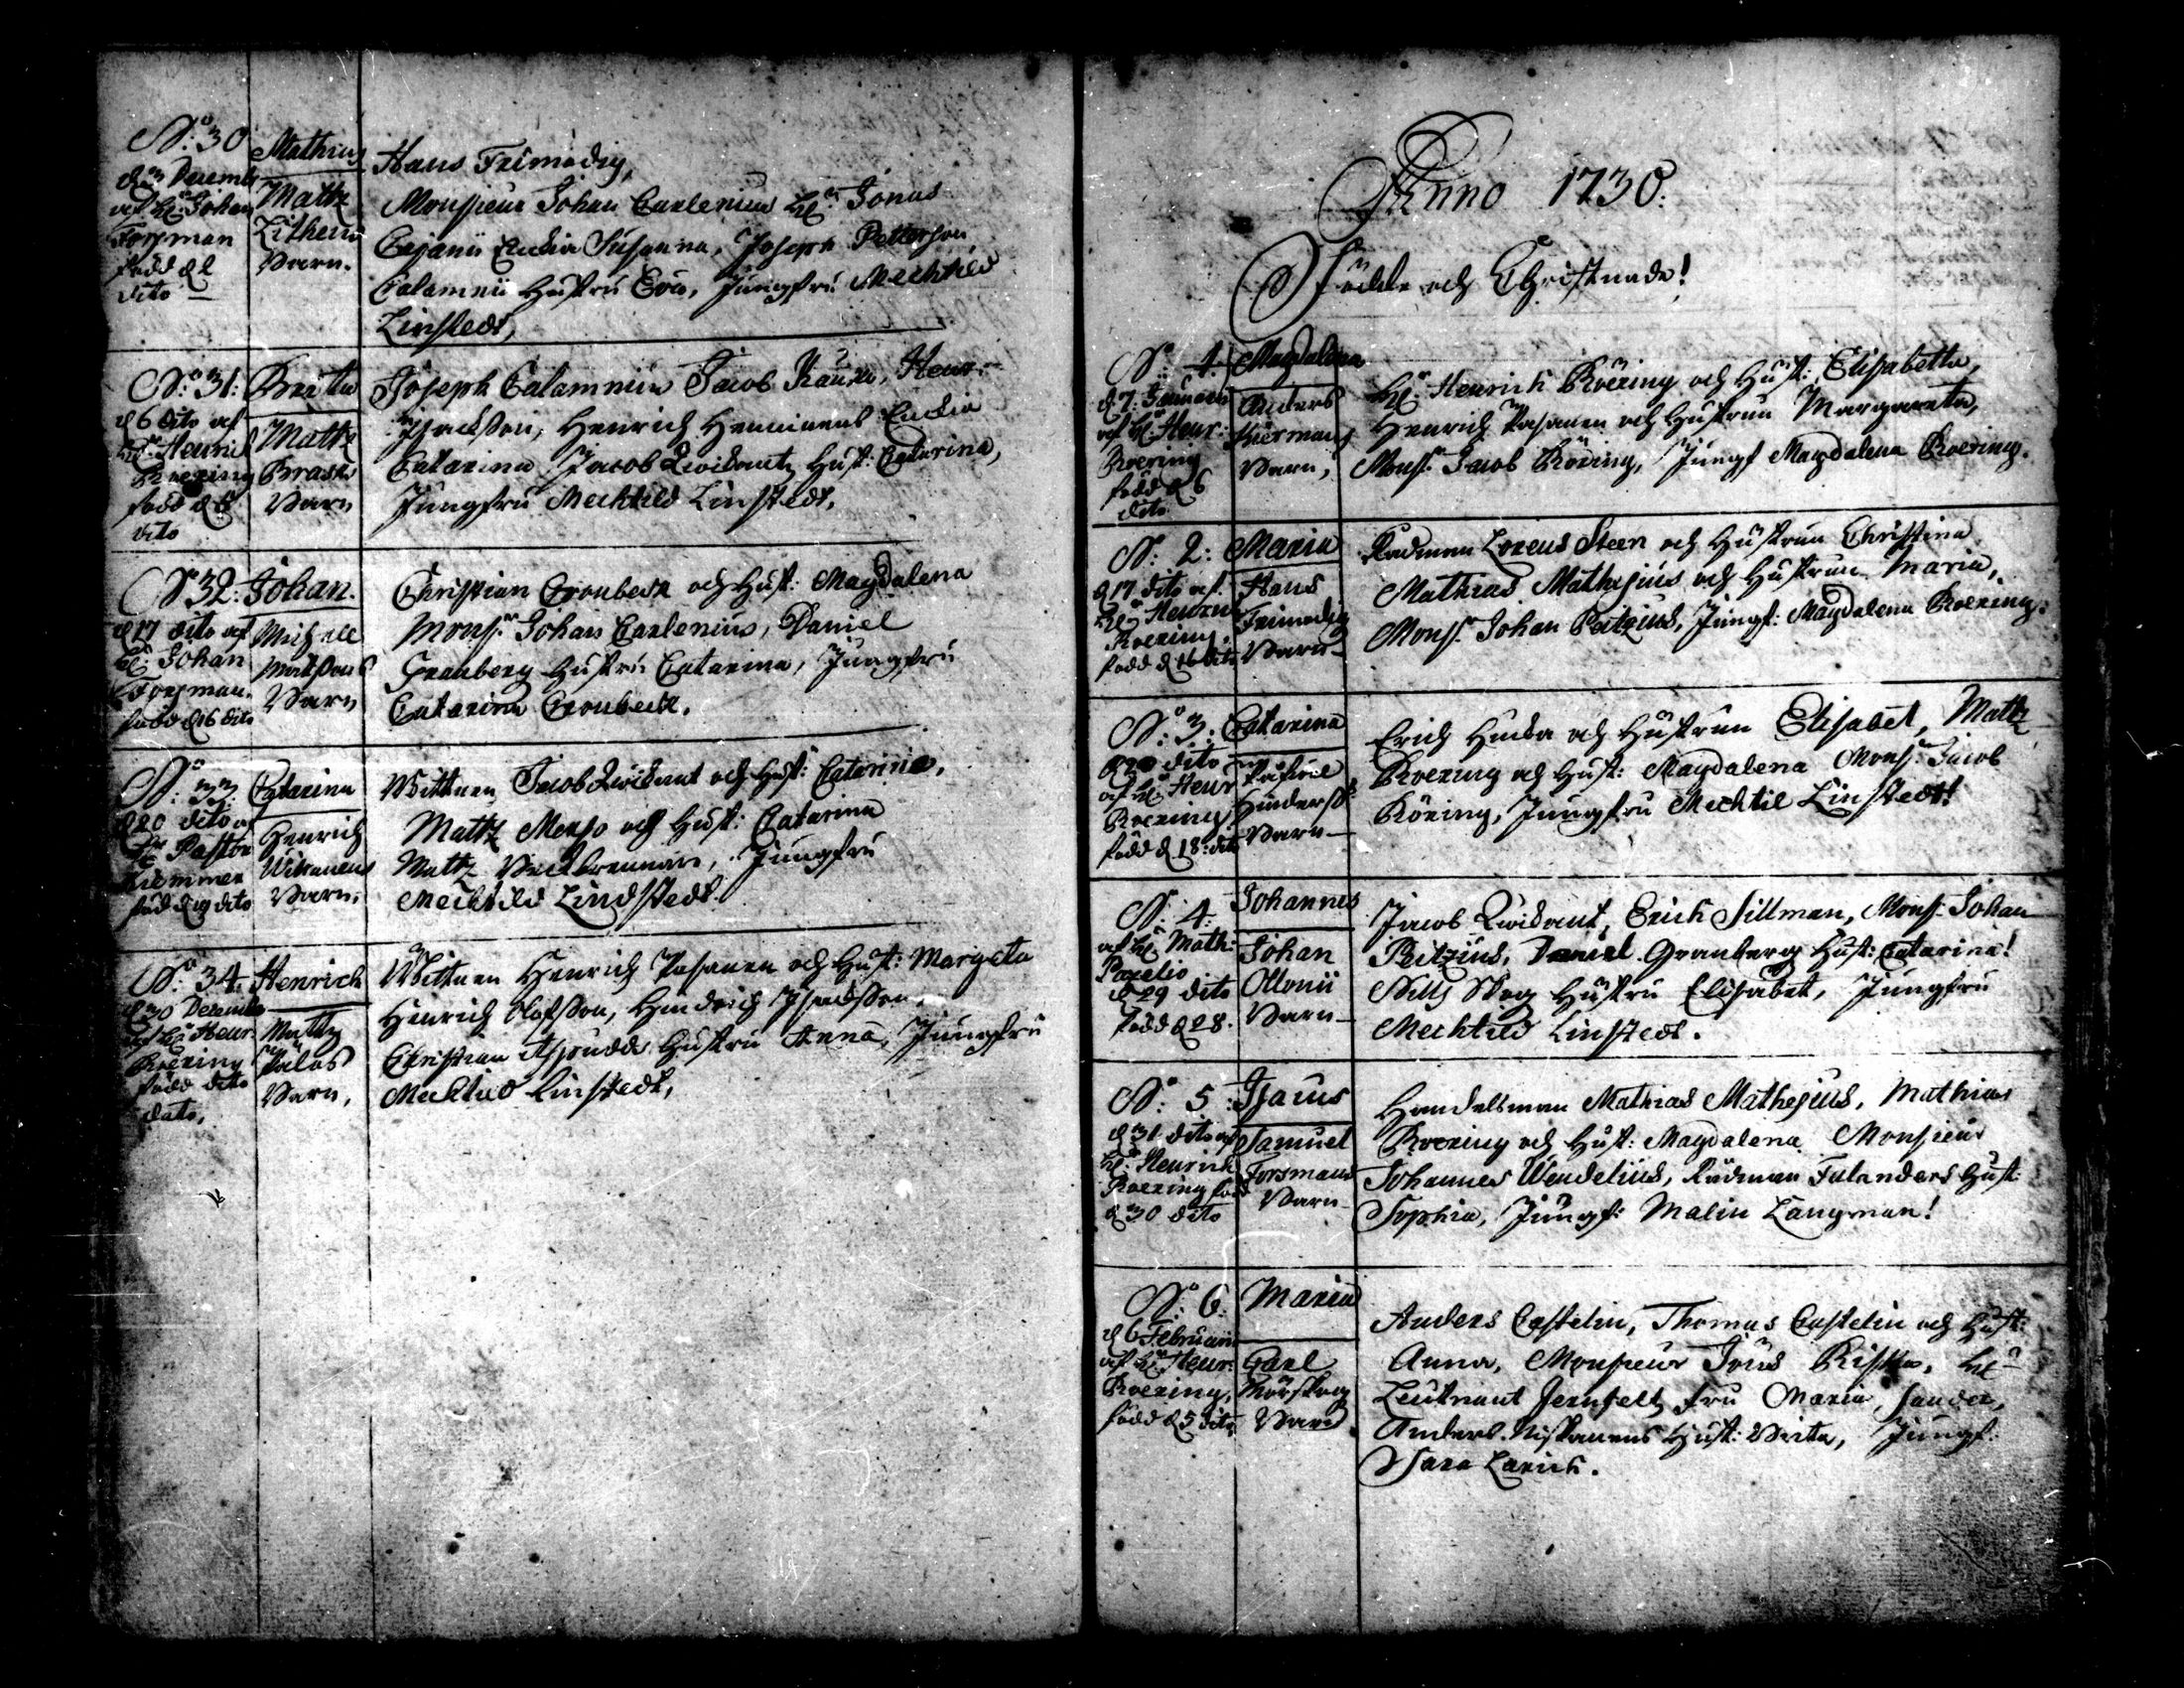 No: 30
d 3 Decemb
af H: Johan
Forsman
född d 2
dito
Mathias
Mattz
Lithens
Barn.
Hans Frimodig,
Monsieur Johan Carlenius H: Jonas
Cajanii Enckia Susanna, Joseph Petterson
Calamnii Hustru Eva, Jungfru Mechtild
Linstedt,
No: 31:
d 6 dito af
H: Henric
Roering
född d 5
dito
Brita
Mattz
Brasks
Barn
Joseph Calamnius Jacob Henr:
Isacksson, Henrich Hemminens Enckia
Catarina, Jacob Qwickantz Hust: Catarina,
Jungfru Mechtild Linstedt.
No 32:
d 17 dito af
H: Johan
Forsman.
född d 16 dito
Johan.
Michell
Matssons
Barn
Christian Cronbeck och Hust: Magdalena
Mons:r Johan Carlenius, Daniel
Granberg Hustru Catarina, Jungfru
Catarina Cronbeck.
No: 33:
d 20 dito af
Pastor
Kiemmer
född d 19 dito
Catarina
Henrich
Witzanens
Barn.
Wittnen Jacob Qwickant och Hust: Catarina,
Mattz Menso och Hust: Catarina
Mattz Jungfru
Mechtild Lindstedt.
No: 34.
d 30 Decemb
af H: Henr:
Roering
född dito
dato.
Henrich
Mattz
Palas
Barn,
Wittnen Henrich Pasanen och Hust: Margeta
Henrich Olofsson, Hindrich Isacksson,
Christian Hustru Anna, Jungfru
Mechtild Linstedt,
Anno 1730:
Födde och Christnade!
No: 1:
d 7. Januarii
af H: Henr:
Roering
född d 6
dito
Magdalena
Anders
Barn,
H: Henrich Roering och Hust: Elisabetta,
Henrich Pasanen och Hustrun Margareta,
Mons: Jacob Röring, Jungf Magdalena Roering.
No: 2:
d 17 dito af
H: Henric
Roering.
född d 16 dito
Maria
Hans
Frimodig
Barn
Rådman Lorens Steen och Hustrun Christina
Mathias Mathejus och Hustrun Maria,
Mons: Johan Peitzius, Jungf: Magdalena Roering:
No: 3:
d 20 dito
af H: Henr
Roering
född d 18: dito
Catarina
Påhvel
Hinderss:
Barn
Erich Hucka och Hustrun Elisabet, Mattz
Roering och Hust: Magdalena Mons: Jacob
Röring, Jungfru Mechtil Linstedt!
No: 4:
af H: Math:
Pazelio
d 29 dito
född d 28.
Johannes
Johan
Ollonii
Barn
Jacob Qwickant, Erich Sillman, Mons: Johan
Peitzius, Daniel Granberg Hust: Catarina!
Nills Skog Hustru Elisabet, Jungfru
Mechtild Linstedt.
No: 5:
d 31 dito af
H: Henrich
Roering född
d 30 dito
Isacus
Samuel
Forsmans
Barn
Handelsman Mathias Mathejus, Mathias
Roering och Hust: Magdalena Monsieur
Johannes Wendelius, Rådman Falanders Hust:
Sophia, Jungf: Malin Langman!
No: 6:
d 6 Februarii
af H: Henr:
Roering,
född d 5 dito
Maria
Carl
Mörskog
Barn
Anders Castelin, Thomas Castelin och Hust:
Anna, Monsieur Jöns H:
Leutnant Jernfelt fru Maria,
Anders Niskanens Hust: Brita, Jungf:
Sara Larich.